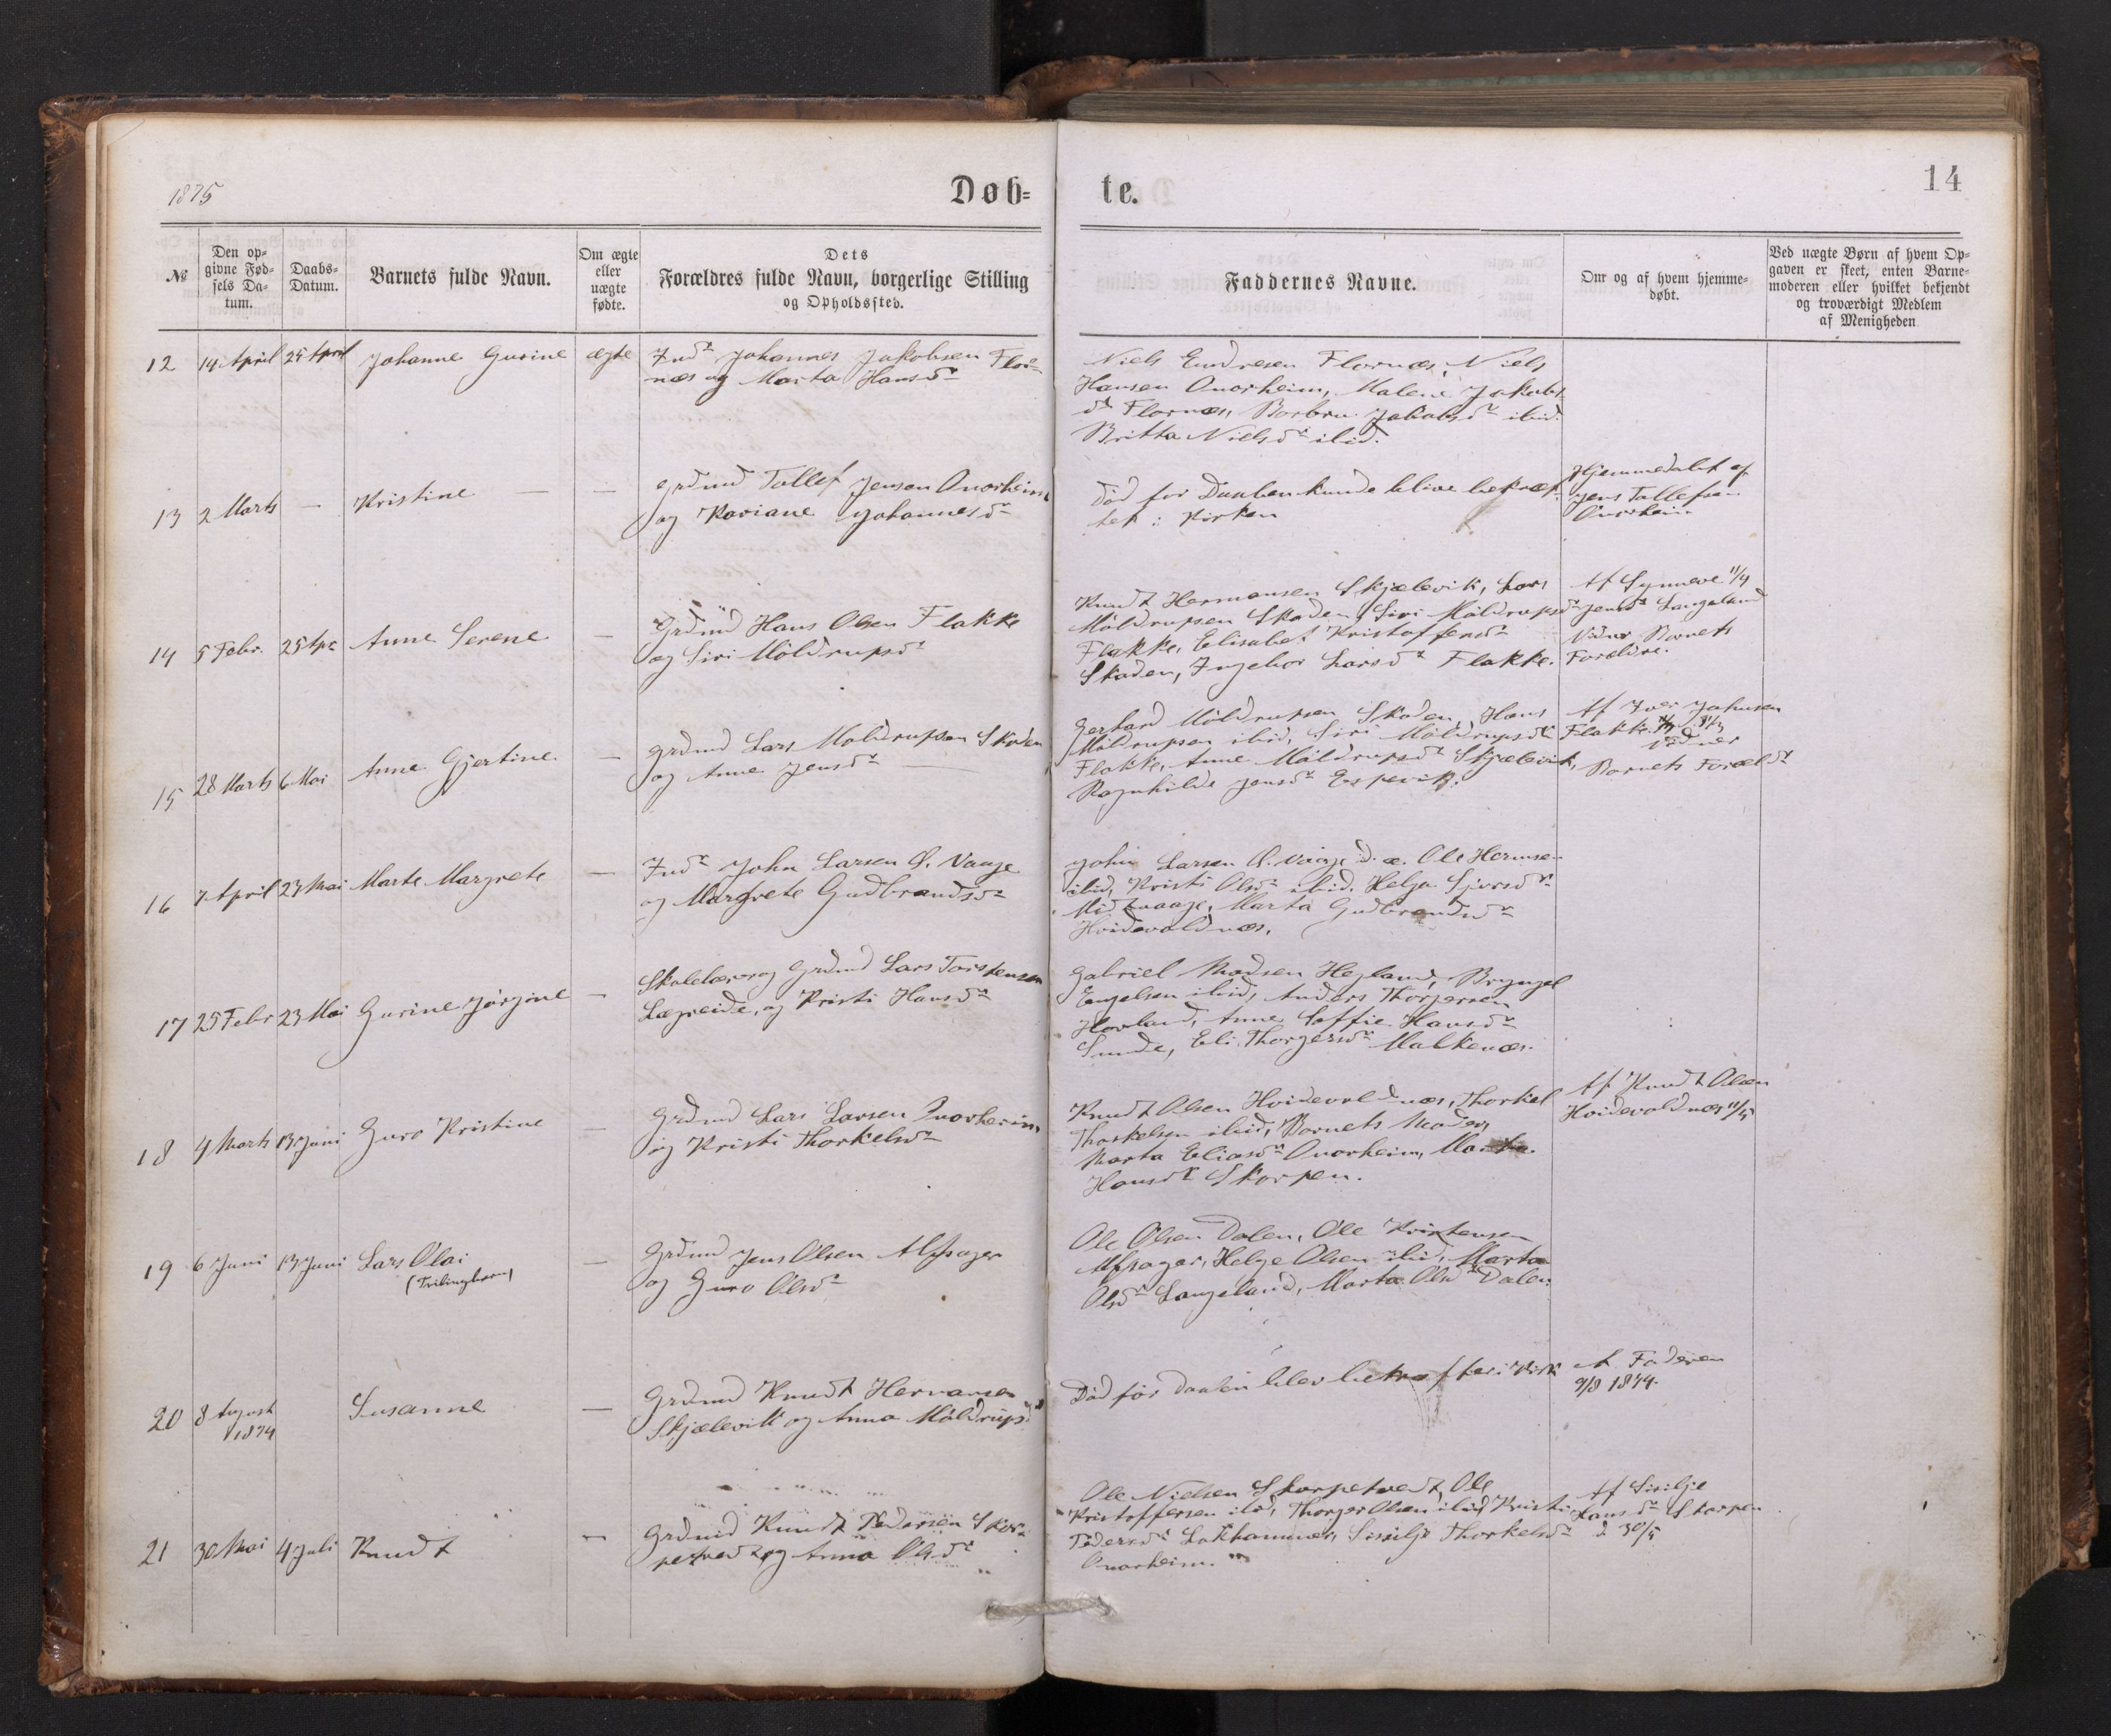 1875
Døb=
te.
14
№
Den op=
givne Fød=
sels Da=
tum.
Daabs=
Datum.
Barnets fulde Navn.
Om ægte
eller
uægte
fødte.
Dets
Forældres fulde Navn, borgerlige Stilling
og Opholdssted.
Faddernes Navne.
Om og af hvem hjemme=
døbt.
Ved uægte Børn af hvem Op=
gaven er skeet, enten Barne=
moderen eller hvilket bekjendt
og troværdigt Medlem
af Menigheden
12 14 April 25 April Johanne Gurine ægte Indr Johannes Jakobsen Flor=
næs og Marta Hansdr
Niels Endresen Flornæs, Niels
Hansen Onarheim, Malene Jakobs
dr Flornæs, Barbru Jakobsdr ibid.
Britta Nielsdr ibid.
13 2 Marts — Kristine — — Grdmd Tollef Jensen Onarheim
og Kariane Johannesdr
Död før Daaben kunde blive bekræf
tet i Kirken
Hjemmedøbt af
Jens Tollefsen
Onarheim
14 5 Febr. 25 Apr Anne Serene — Grdmd Hans Olsen Flakke
og Siri Möldrupsdr
Knudt Hermansen Skjælevik, Lars
Möldrupsen Skaden, Siri Möldrupsdr
Flakke, Elisabet Kristoffersdr
Skaden, Ingebor Larsdr Flakke.
Af Synneve 11/4
Jensdr Langeland
Vidner Barnets
Forældre.
15 28 Marts 6 Mai Anne Gjertine — Grdmd Lars Möldrupsen Skaden
og Anne Jensdr
Gerhard Möldrupsen Skaden, Hans
Möldrupsen ibid, Siri Möldrupsdr
Flakke, Anne Möldrupsdr Skjælevik,
Ragnhilde Jensdr Espevik.
Af Iver Johnsen
Flakke
Vidner
Barnets Foræld
16 7 April 23 Mai Marte Margrete — Indr John Larsen Ø. Vaage
og Margrete Gudbrandsdr
John Larsen Ø. Vaage d. æ. Ole Hermsen
ibid, Kristi Olsdr ibid. Helga Sjursdr
Midtvaage, Marta Gudbrandsdr
Hvidevoldnæs.
17 25 Febr 23 Mai Gurine Jørgine — Skolelærer og Grdmd Lars Torstensen
Lægreide, og Kristi Hansdr
Gabriel Madsen Hegland, Brynjel
Engelsen ibid, Anders Thorgersen
Hovland, Anne Soffie Hansdr
Sunde, Eli Thorgersdr Malkenæs.
18 4 Marts 13 Juni Guro Kristine — Grdmd Lars Larsen Onarheim
og Kristi Thorkelsdr
Knudt Olsen Hvidevoldnæs, Thorkel
Thorkelsen ibid, Barnets Moder,
Marta Eliasdr Onarheim, Marta
Hansdr Skorpen.
Af Knudt Olsen
Hvidevoldnæs 11/5
19 6 Juni 13 Juni Lars Olai
(Tvilingbarn)
— Grdmd Jens Olsen Alfsager
og Guro Olsdr
Ole Olsen Dalen, Ole Kristensen
Alfsager, Helge Olsen ibid, Marta
Olsdr Langeland, Marta Olsdr Dalen.
20 8 August
1874
Susanne — Grdmd Knudt Hermansen
Skjælevik og Anna Möldrupsd
Død før Daaben blev bekræftet i Kirk
Af Faderen
9/8 1874.
21 30 Mai 4 Juli Knudt — Grdmd Knudt Pedersen Skor=
petvedt og Anna Olsdr
Ole Nielsen Skorpetvedt, Ole
Kristoffersen ibid, Thorger Olsen ibid, Kristi
Pedersdr Lokhammer, Sesilje Thorkelsdr
Onarheim.
Af Sisilje
Hansdr Skorpen
d 30/5